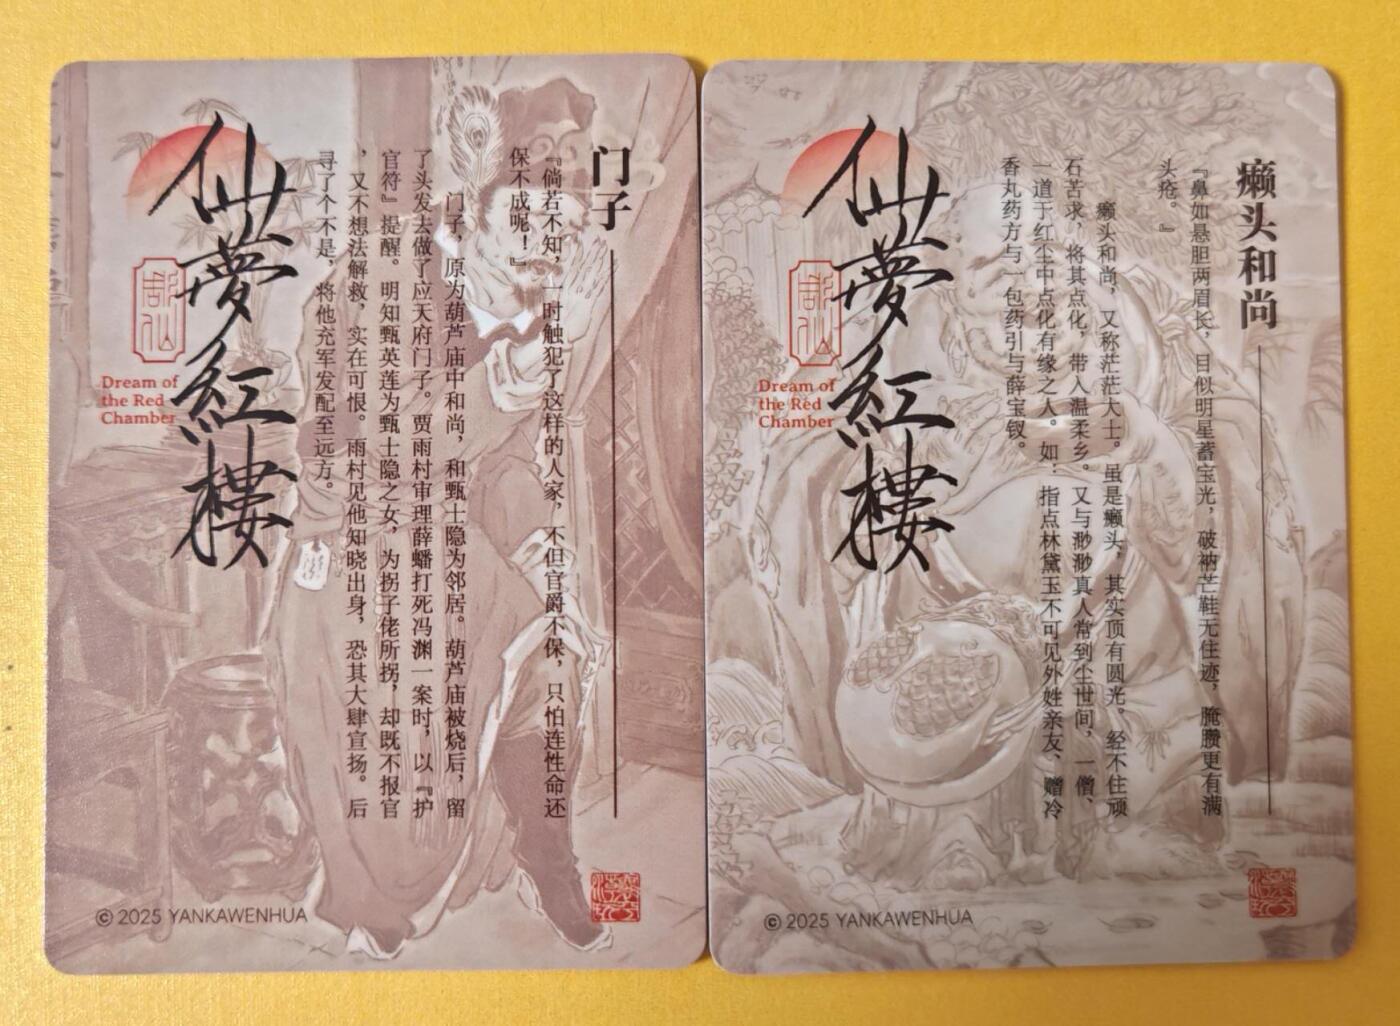 门子
『倘若不知，一时触犯了这样的人家，不但官爵不保，只怕连性命还
保不成呢！』
门子，原为葫芦庙中和尚，和甄士隐为邻居。葫芦庙被烧后，留
了头发去做了应天府门子。贾雨村审理薛蟠打死冯渊一案时，以『护
官符』提醒。明知甄英莲为甄士隐之女，为拐子佬所拐，却既不报官
，又不想法解救，实在可恨。雨村见他知晓出身，恐其大肆宣扬。后
寻了个不是，将他充军发配至远方。
仙夢紅樓
Dream of
the Red
Chamber
© 2025 YANKAWENHUA
癞头和尚
『鼻如悬胆两眉长，目似明星蓄宝光，破衲芒鞋无住迹，腌臜更有满
头疮。』
癞头和尚，又称茫茫大士。虽是癞头，其实顶有圆光。经不住顽
石苦求，将其点化，带入温柔乡。又与渺渺真人常到尘世间，一僧、
一道于红尘中点化有缘之人。如：指点林黛玉不可见外姓亲友、赠冷
香丸药方与一包药引与薛宝钗。
仙夢紅樓
Dream of
the Red
Chamber
© 2025 YANKAWENHUA